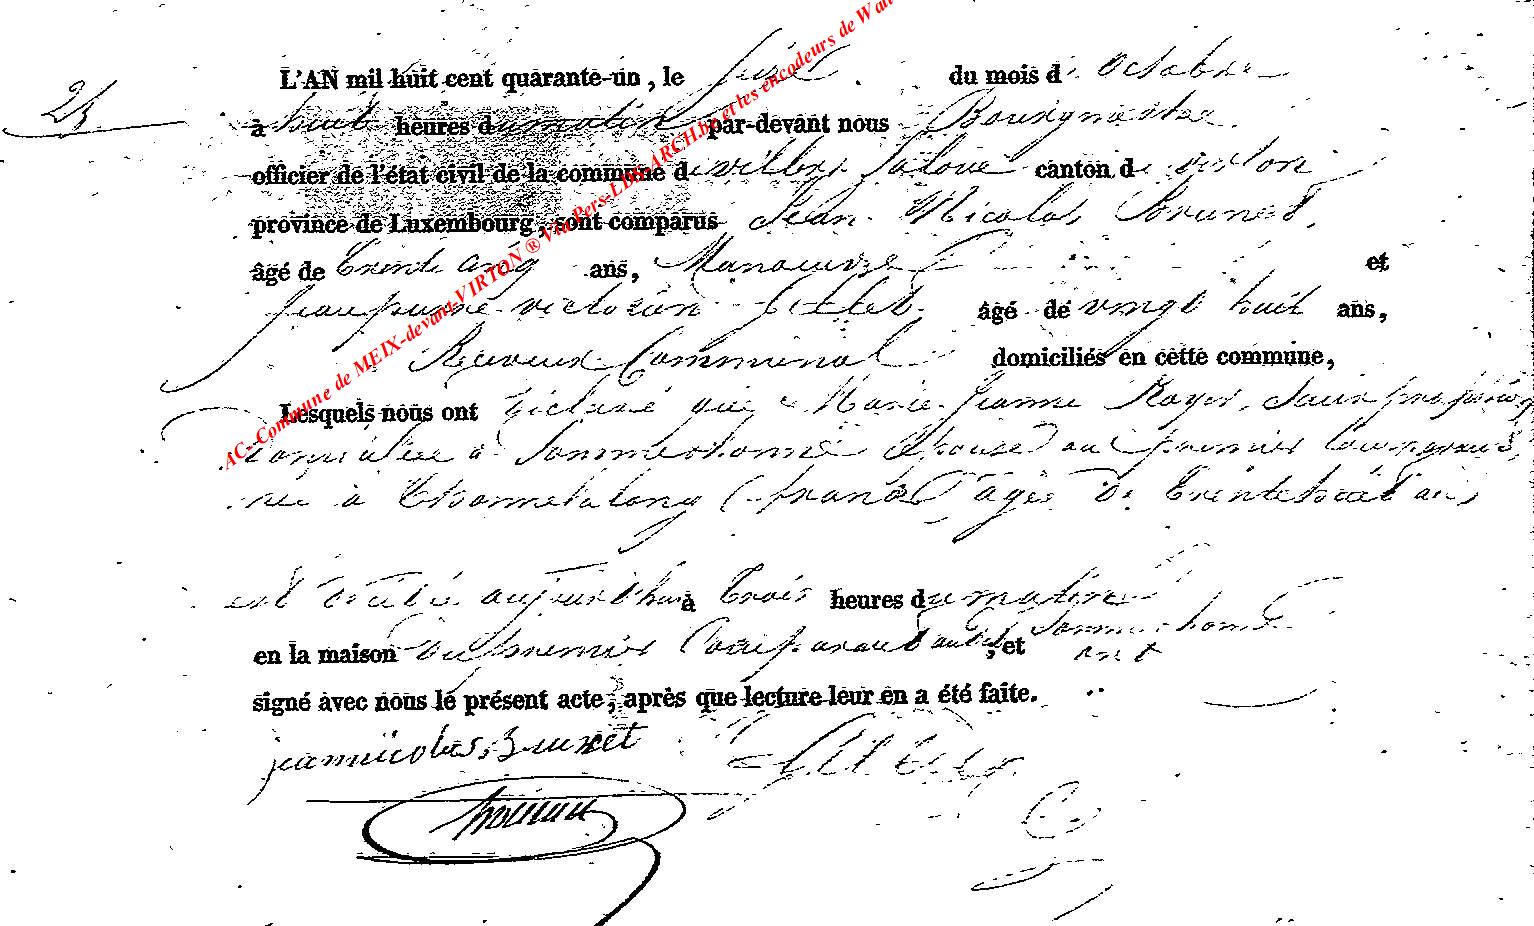 25
L'AN mil huit cent quarante-un, le seize du mois d'Octobre
à huit heures du matin par-devant nous Bourgmestre
officier de l'état civil de la commune de villers laloue canton de virton
province de Luxembourg, sont comparus Jean Nicolas Brunet,
âgé de trente cinq ans, Manoeuvre et
Jean pierre victorin Gillet âgé de vingt huit ans,
Receveur Communal domiciliés en cette commune,
Lesquels nous ont déclaré que Marie Jeanne Royer, Sans profession
domiciliée à Sommethonne épouse au premier Comparant,
née à thonnelalong (france) agée de trentehuit ans
est décédée aujourd'hui à trois heures du matin
en la maison du premier Comparant audit Sommethonne, et ont
signé avec nous le présent acte, après que lecture leur en a été faite.
jean nicolas Brunet
AC-Commune de MEIX-devant-VIRTON ® Via Pers-LDS-ARCH.be et les encodeurs de Wal